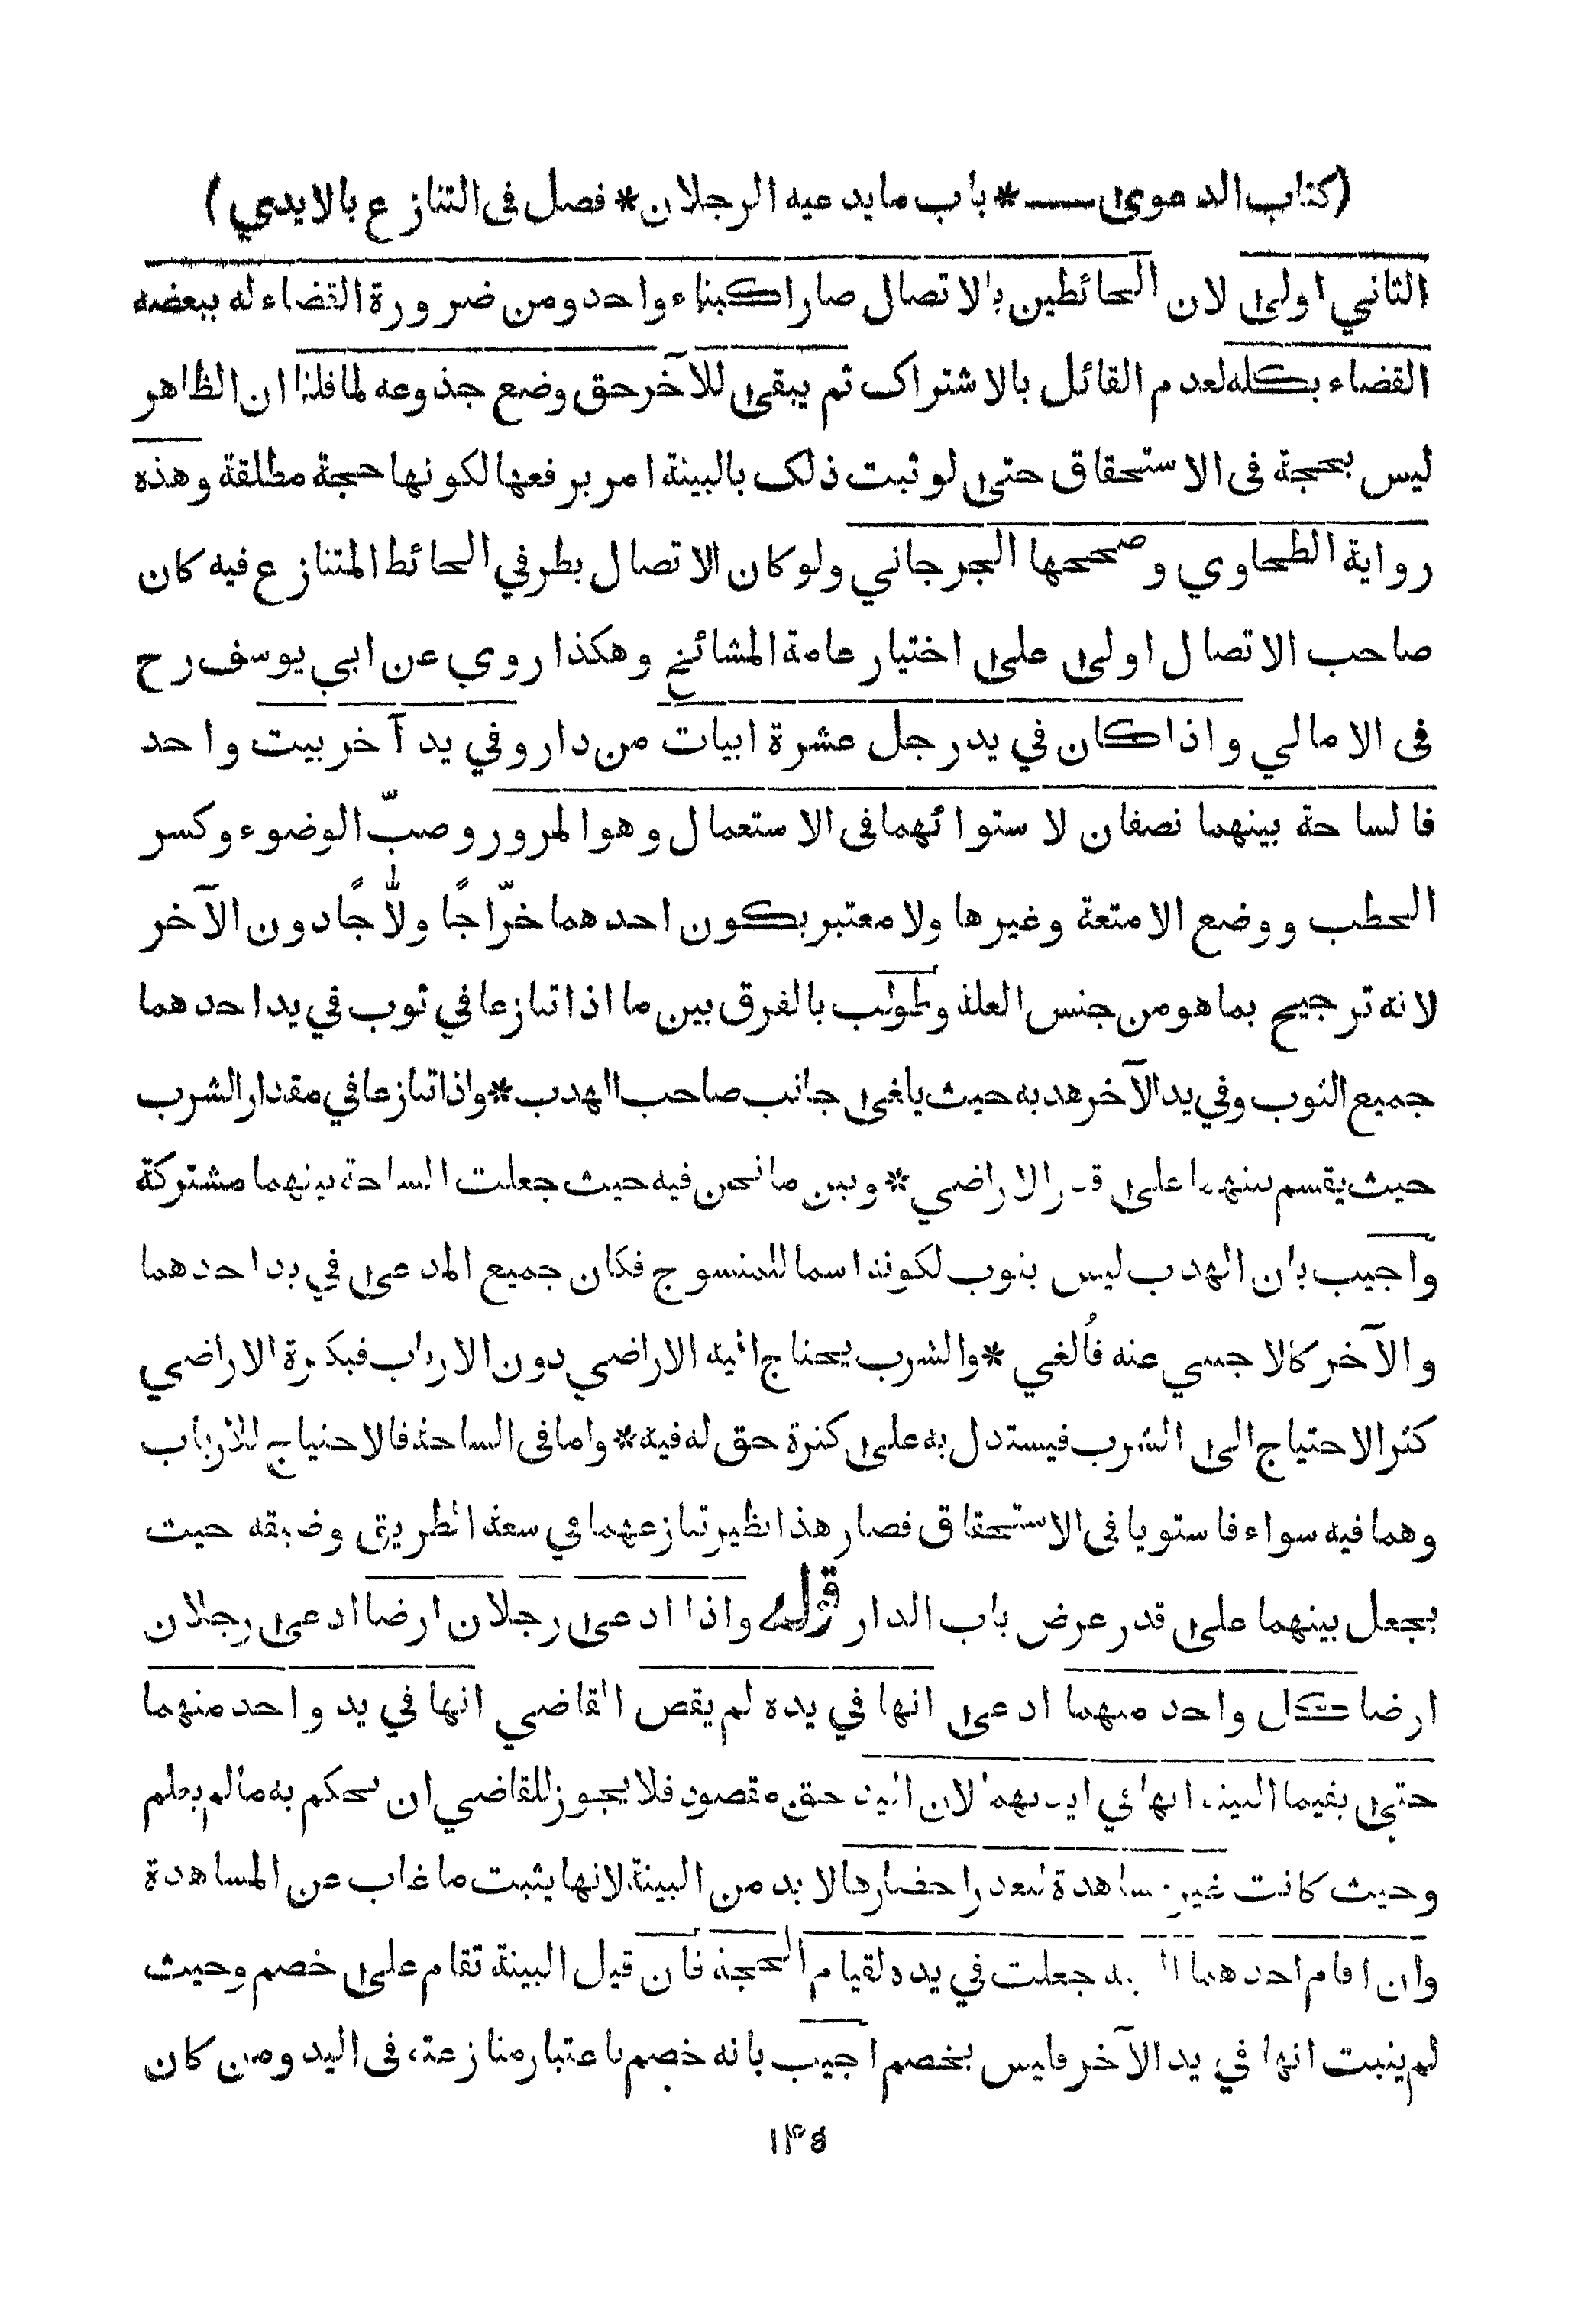 (كتاب الدعوى ــــ * باب ما يدعيه الرجلان * فصل فى التنازع بالايدي)
الثاني اولى لان الحائطين بالاتصال صارا كبناء واحد ومن ضرورة القضاء له ببعضه
القضاء بكله لعدم القائل بالاشتراك ثم يبقى للآخر حق وضع جذوعه لما قلنا ان الظاهر
ليس بحجة فى الاستحقاق حتى لو ثبت ذلك بالبينة امر برفعها لكونها حجة مطلقة وهذه
رواية الطحاوي وصححها الجرجاني ولو كان الاتصال بطرفي الحائط المتنازع فيه كان
صاحب الاتصال اولى على اختيار عامة المشائخ وهكذا روي عن ابي يوسف رح
فى الامالي واذا كان في يد رجل عشرة ابيات من دار وفي يد آخر بيت واحد
فالساحة بينهما نصفان لاستوائهما فى الاستعمال وهو المرور وصبّ الوضوء وكسر
الحطب ووضع الامتعة وغيرها ولا معتبر بكون احدهما خرّاجًا ولّاجًا دون الآخر
لانه ترجيح بما هو من جنس العلة وطولب بالفرق بين ما اذا تنازعا في ثوب في يد احدهما
جميع الثوب وفي يد الآخر هدبه حيث يلغى جانب صاحب الهدب * واذا تنازعا في مقدار الشرب
حيث يقسم بينهما على قدر الاراضي * وبين ما نحن فيه حيث جعلت الساحة بينهما مشتركة
واجيب بان الهدب ليس بثوب لكونه اسما للمنسوج فكان جميع المدعى في يد احدهما
والآخر كالاجنبي عنه فأُلغي * والشرب يحتاج اليه الاراضي دون الارباب فبكثرة الاراضي
كثر الاحتياج الى الشرب فيستدل به على كثرة حق له فيه * واما فى الساحة فالاحتياج للأرباب
وهما فيه سواء فاستويا فى الاستحقاق فصار هذا نظير تنازعهما في سعة الطريق وضيقه حيث
يجعل بينهما على قدر عرض باب الدار قوله واذا ادعى رجلان ارضا ادعى رجلان
ارضا كل واحد منهما ادعى انها في يده لم يقض القاضي انها في يد واحد منهما
حتى يقيما البينة انها في ايديهما لان اليد حق مقصود فلا يجوز للقاضي ان يحكم به مالم يعلم
وحيث كانت غير مشاهدة لتعذر احضارها لا بد من البينة لانها يثبت ما غاب عن المشاهدة
وان اقام احدهما البينة جعلت في يده لقيام الحجة فأن قيل البينة تقام على خصم وحيث
لم يثبت انها في يد الآخر فليس بخصم اجيب بانه خصم باعتبار منازعته فى اليد ومن كان
١٣٥